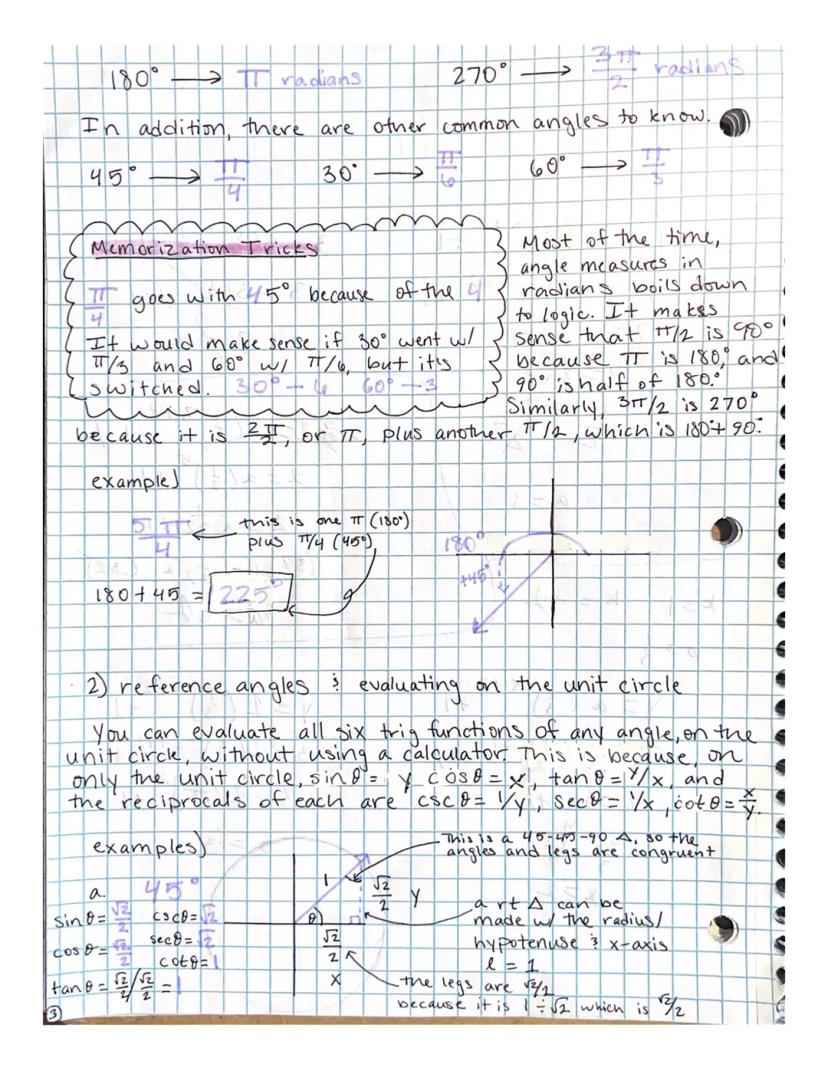 180° → π radians 270° → 3π/2 radians
In addition, there are other common angles to know.
45° → π/4 30° → π/6 60° → π/3
Memorization Tricks
π/4 goes with 45° because of the 4
It would make sense if 30° went w/
π/3 and 60° w/ π/6, but it's
switched. 30° – 6 60° – 3
Most of the time,
angle measures in
radians boils down
to logic. It makes
sense that π/2 is 90°
because π is 180°, and
90° is half of 180.°
Similarly, 3π/2 is 270°
because it is 2π/2, or π, plus another π/2, which is 180°+ 90°.
example)
5π/4 ← this is one π (180°)
plus π/4 (45°)
180 + 45 = 225°
180°
+45°
2) reference angles & evaluating on the unit circle
You can evaluate all six trig functions of any angle, on the
unit circle, without using a calculator. This is because, on
only the unit circle, sin θ = y, cos θ = x, tan θ = y/x, and
the reciprocals of each are csc θ = 1/y, sec θ = 1/x, cot θ = x/y.
examples)
a. 45°
sin θ = √2/2 csc θ = √2
cos θ = √2/2 sec θ = √2
cot θ = 1
tan θ = √2/2 / √2/2 = 1
1
θ
√2/2 y
√2/2
x
This is a 45-45-90 △, so the
angles and legs are congruent
a rt △ can be
made w/ the radius/
hypotenuse & x-axis
l = 1
the legs are √2/2
because it is 1 ÷ √2 which is √2/2
3